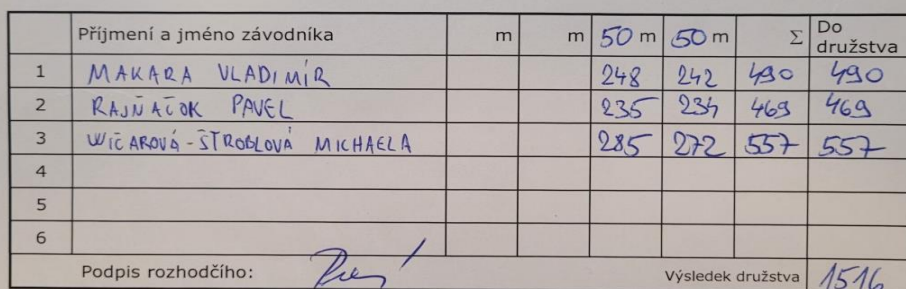 Příjmení a jméno závodníka m m 50 m 50 m Σ Do družstva
1 MAKARA VLADIMÍR 248 242 490 490
2 RAJŇAČOK PAVEL 235 234 469 469
3 WIČAROVÁ-ŠTROBLOVÁ MICHAELA 285 272 557 557
4
5
6
Podpis rozhodčího: Výsledek družstva 1516